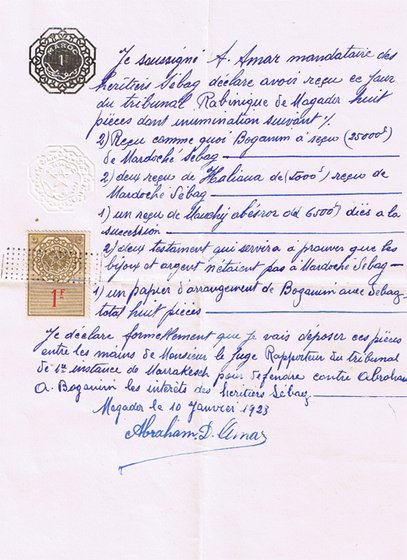 MAROC
1
Je soussigné A. Amar mandataire des
heritiers Sébag déclare avoir reçu ce jour
du tribunal Rabinique de Magador huit
pièces dans inumination suivant %
2) Reçu comme quoi Boganim à reçu (25000f)
de Mardoché Sébag
2) deux reçu de Haliaua de (5000f) reçu de
Mardoché Sébag
1) un reçu de abésror de 6500f) diës a la
succession
2) deux testament qui servira à prouver que les
bijoux et argent nétaient pas à Mardoché Sébag
1) un papier d'arrangement de Boganim avec Sébag
total huit pièces
1F
Je déclare formellement que je vais déposer ces pièces
entre les mains de Monsieur le Juge Rapporteur du tribunal
de 1re instance de Marrakesch pour defendre contre Abraham
A. Boganim les interéts des heritiers Sébag
Magador le 10 Janvier 1923
Abraham. D. Amar